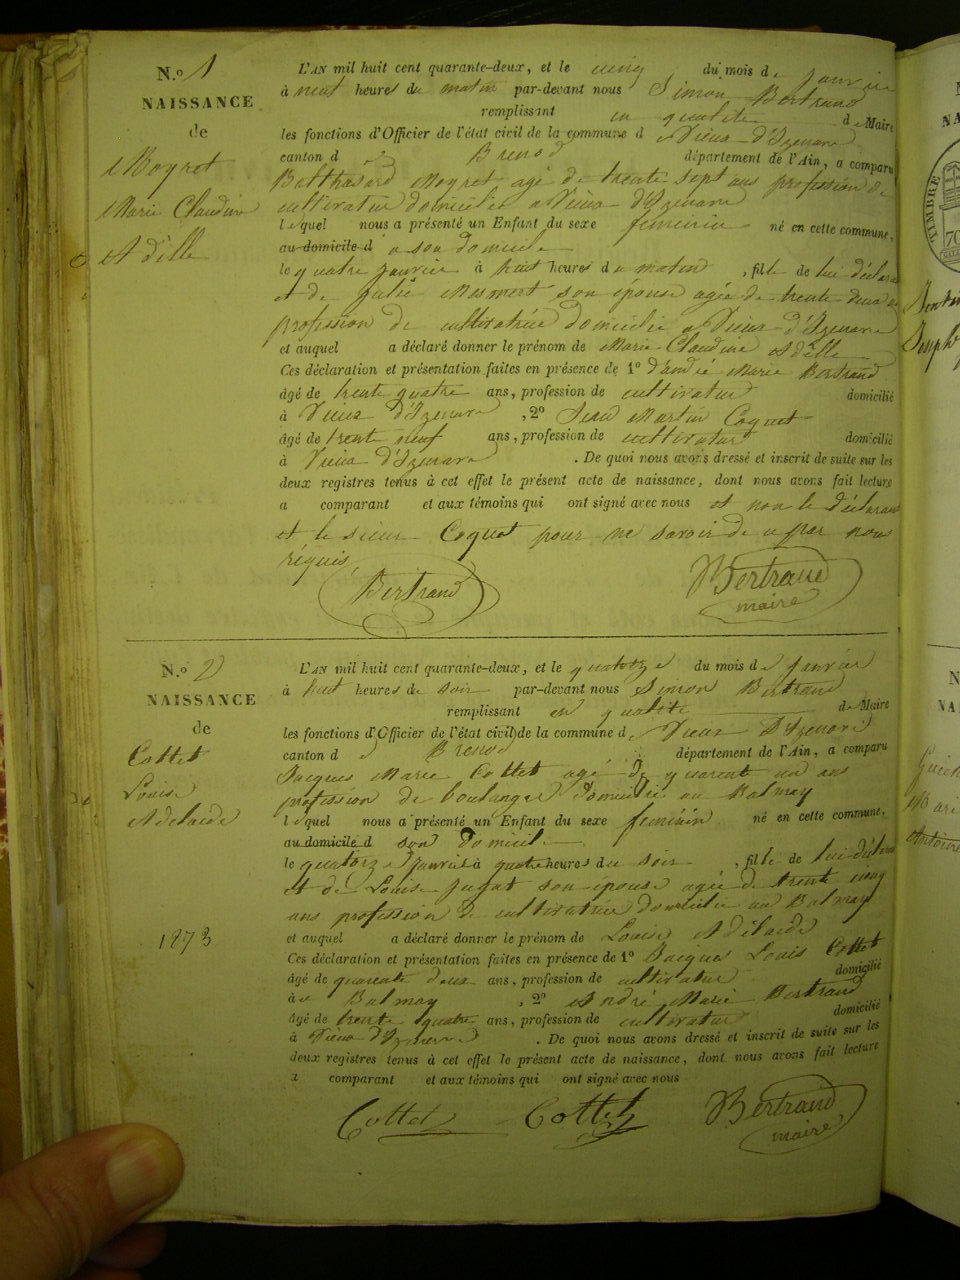 N.o 1
NAISSANCE
de
Moyret
Marie Claudine
Adélle
L'AN mil huit cent quarante-deux, et le cinq du mois de Janvier
à neuf heures du matin par-devant nous Simon Bertrand
remplissant en qualité de Maire
les fonctions d'Officier de l'état civil de la commune d Vieux d'Izenave
canton d Brenod département de l'Ain, a comparu
Balthasard Moyret agé de trente sept ans profession de
cultivatur domicilié a Vieux d'Izenave
lequel nous a présenté un Enfant du sexe feminin né en cette commune,
au domicile d a son domicile
le quatre janvier à huit heures du matin, fille de lui déclarant
et de Julie Mermert son épouse agée de trente deux
profession de cultivatrice domicilié a Vieux d'Izenave
et auquel a déclaré donner le prénom de Marie Claudine Adélle
Ces déclaration et présentation faites en présence de 1o d'andré Marie Bertrand
âgé de trente quatre ans, profession de cultivatur domicilié
à Vieux d'Izenave, 2o Jean Martin Coquet
âgé de trente neuf ans, profession de cultivatur domicilié
à Vieux d'Izenave. De quoi nous avons dressé et inscrit de suite sur les
deux registres tenus à cet effet le présent acte de naissance, dont nous avons fait lecture
a comparant et aux témoins qui ont signé avec nous et non le déclarant
et le sieur Coquet pour ne savoir de ce par nous
réquis,
Bertrand
Bertrand
maire
N.o 2
NAISSANCE
de
Cottet
Louise
Adelaide
1873
L'AN mil huit cent quarante-deux, et le quatorze du mois de Janvier
à huit heures de soir par-devant nous Simon Bertrand
remplissant en qualité de Maire
les fonctions d'Officier de l'état civil de la commune d Vieux D'Izenave
canton d Brenod département de l'Ain, a comparu
Jacques Marie Cottet agé de quarent un ans
profession de boulanger domicilié au Balmay
lequel nous a présenté un Enfant du sexe feminin né en cette commune,
au domicile d son domicile
le quatorze janvier à quatre heures du soir, fille de lui déclarant
et de Louise Jugat son épouse agée de trente cinq
ans profession de cultivatrice domicilié au Balmay
et auquel a déclaré donner le prénom de Louise Adélaide
Ces déclaration et présentation faites en présence de 1o Jacques Louis Cottet
âgé de quarente deux ans, profession de cultivatur domicilié
au Balmay, 2o André Marie Bertrand
âgé de trente quatre ans, profession de cultivatur domicilié
à Vieux d'Izenave. De quoi nous avons dressé et inscrit de suite sur les
deux registres tenus à cet effet le présent acte de naissance, dont nous avons fait lecture
a comparant et aux témoins qui ont signé avec nous
Cottet
Cottet
Bertrand
maire
TIMBRE